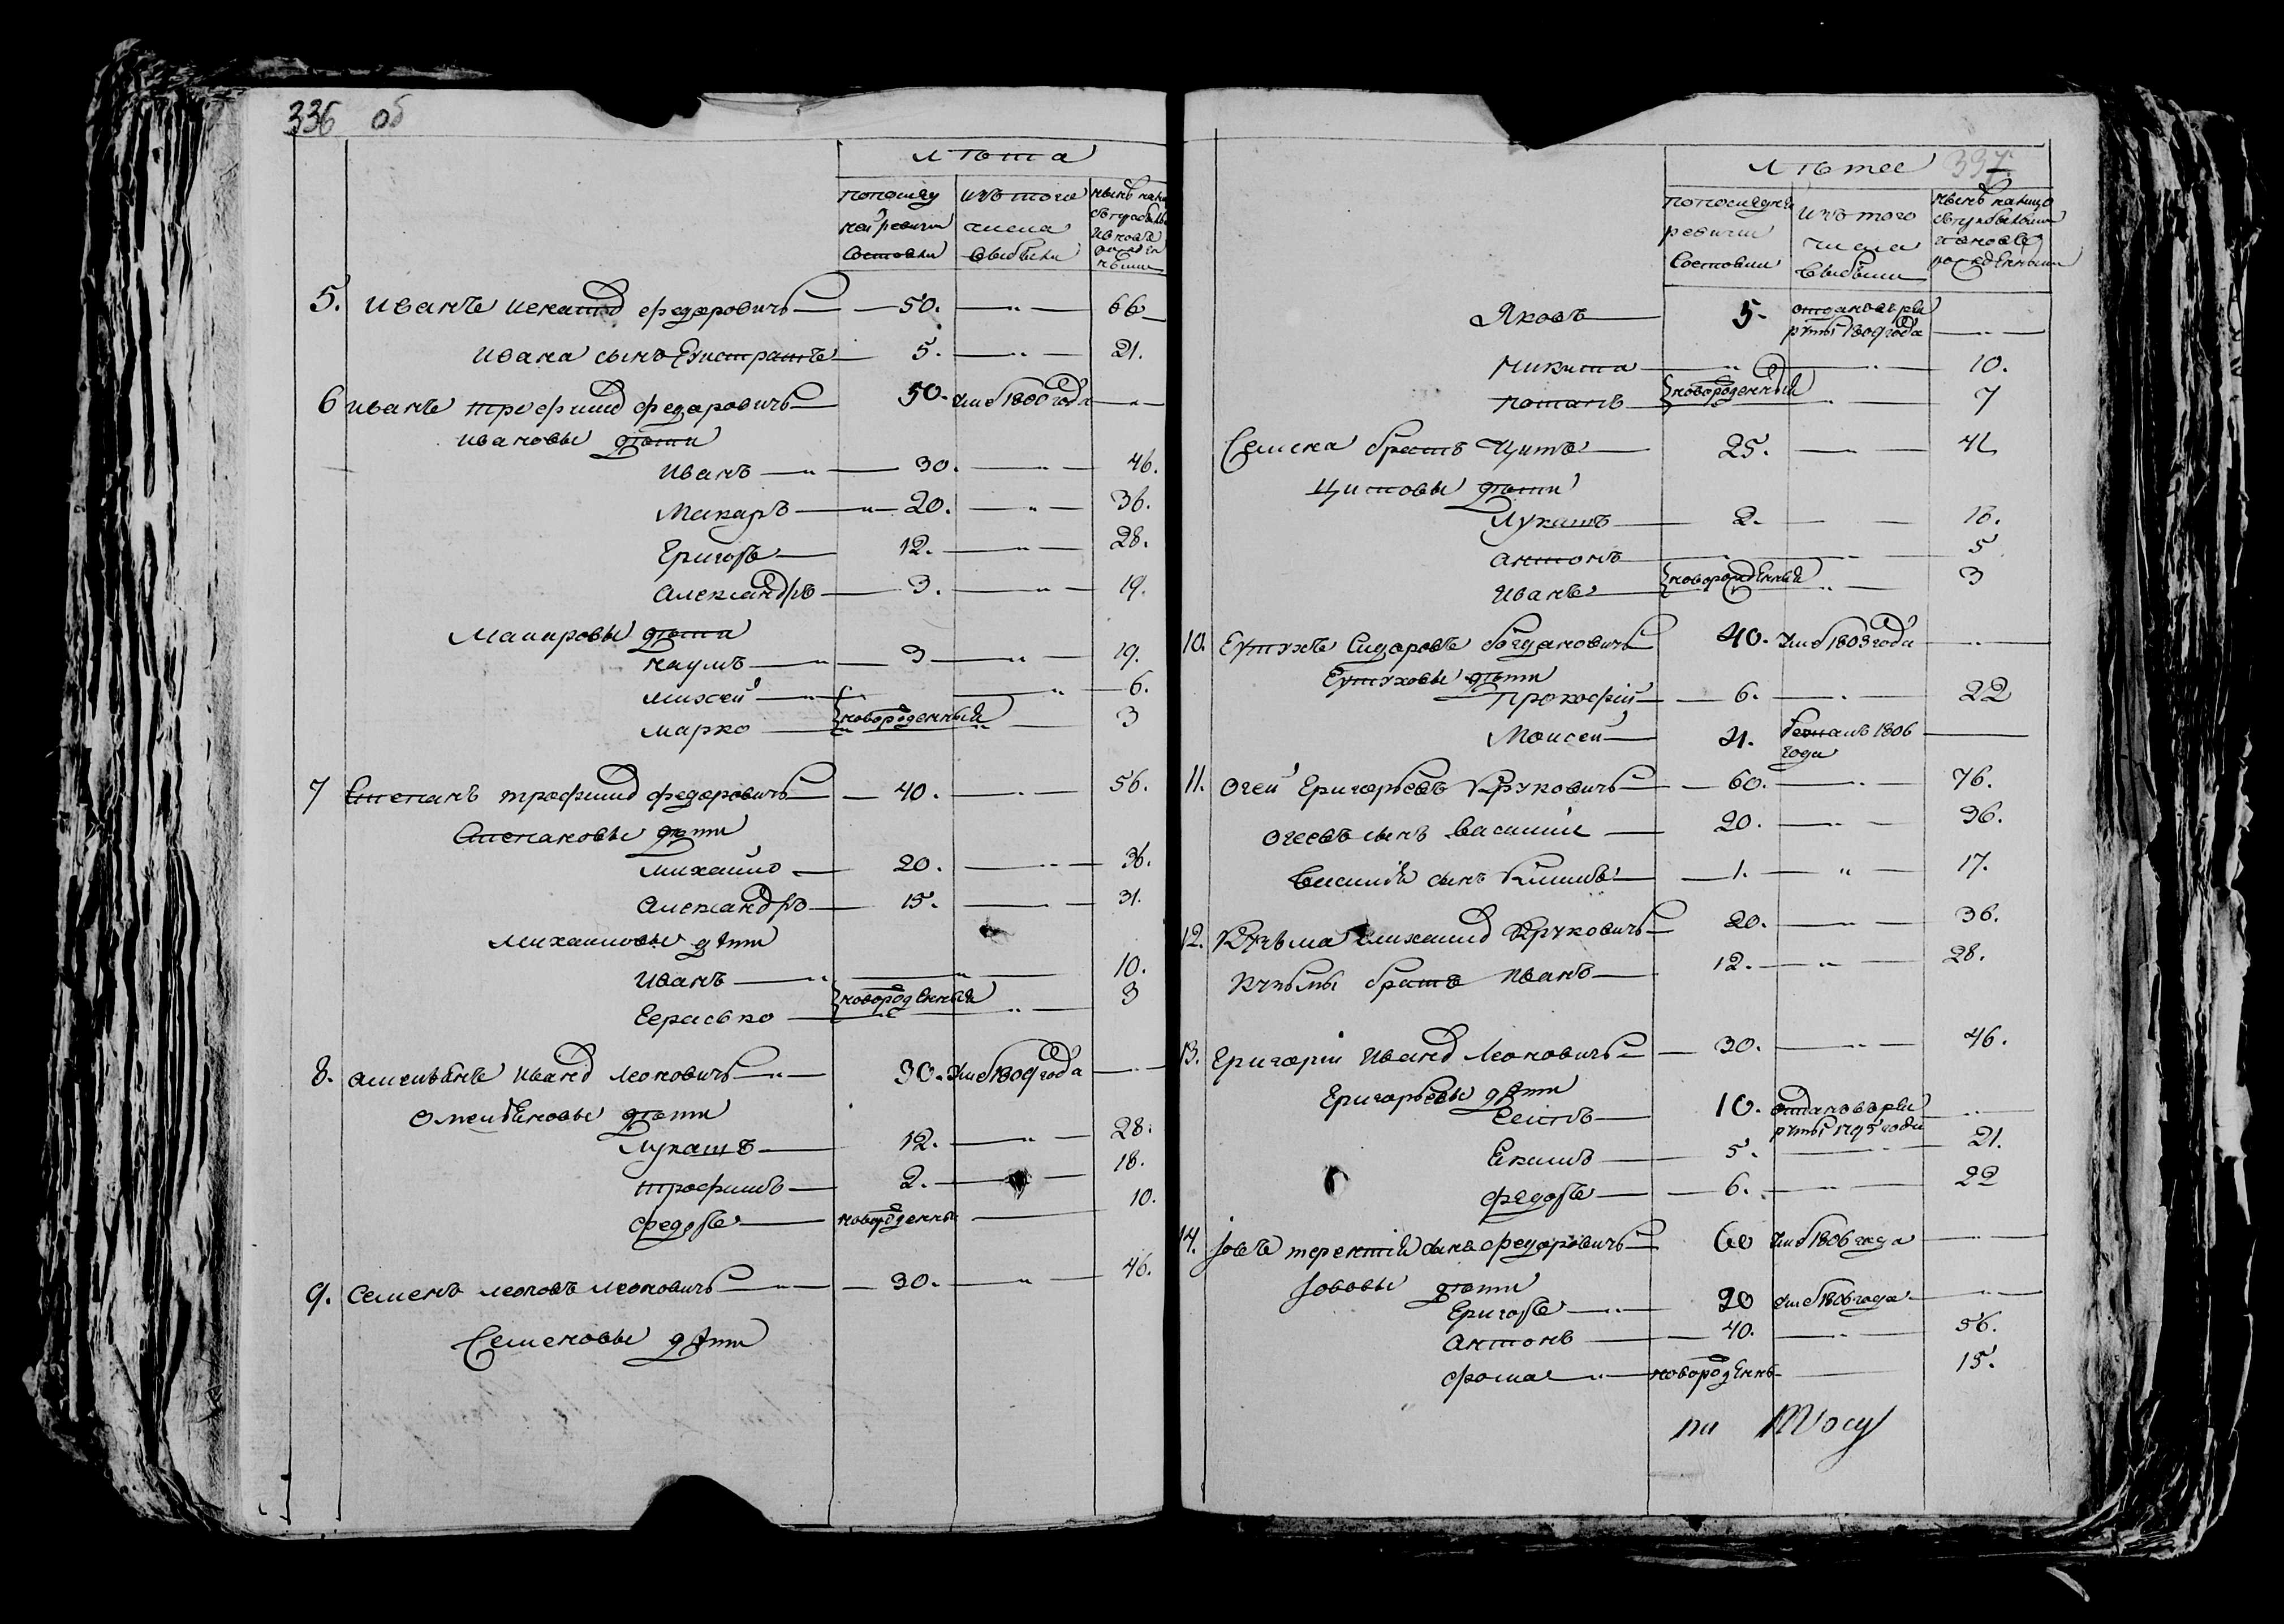 336 об
Лѣта
попослед ней ревизии состояли
изъ того числа выбыли
нынѣ налицо
5. Иванъ Иснатіо Федаровичъ — 50. — „ — 66
Ивана сынъ Евистратъ — 5. — „ — 21.
6 Иванъ Трофимо Федаровичъ — 50. Умеб 1800 года — „ —
Ивановы дѣти
Иванъ — „ — 30. — „ — 46.
Макаръ — „ — 20. — „ — 36.
Григоръ — 12. — „ — 28.
Александръ — 3. — „ — 19.
Макаровы дѣти
Наумъ — „ — 3 — „ — 19.
Михей — „ — „ — 6.
Марко — новороденный — „ — 3
7 Степанъ Трофимо Федаровичъ — 40. — „ — 56.
Степановы дѣти
Михайло — 20. — „ — 36.
Александръ — 15. — „ — 31.
Михаиловы дѣти
Иванъ — „ — „ — 10.
Гераско — новороденный — „ — 3
8. Амельянъ Ивано Леоновичъ — „ — 30. Умеб 1809 года — „ —
Омельяновы дѣти
Лукашъ — 12. — „ — 28.
Трофимъ — 2. — 18.
Федоръ — новороденны — 10.
9. Семенъ Леоновъ Леоновичъ — „ — 30. — „ — 46.
Семеновы дѣти
337
Лѣтее
попоследней ревизии состояли
изъ того числа выбыли
нынѣ налицо
Яковъ — 5. отданъ въ рекруты 1809 года — „ —
Микита — „ — „ — 10.
Потапъ — новороденный — „ — 7
Семена братъ Титъ — 25. — „ — 41
Титовы дѣти
Лукашъ — 2. — 18.
Антонъ — „ — „ — 5
Иванъ — новорожденный — „ — 3
10. Евтухъ Сидаровъ Богдановичъ — 40. Умеб 1803 года — „ —
Евтуховы дѣти
Прокофій — 6. — „ — 22
Моисей — 4. бежалъ 1806 года —
11. Огей Григорьевъ Круковичъ — 60. — „ — 76.
Огеевъ сынъ Василии — 20. — „ — 36.
Василій сынъ Климъ — 1. — „ — 17.
12. Кузьма Михаило Круковичъ — 20. — „ — 36.
Кузьмы братъ Иванъ — 12. — „ — 28.
13. Григорiи Ивано Леоновичъ — 30. — „ — 46.
Григорьевы дѣти
10. отданъ въ рекруты 1795 года — „ —
Екимъ — 5. — „ — 21.
Федоръ — 6. — „ — 22
14. Іовъ Терентій сынъ Федаровичъ — 60 Умеб 1806 года — „ —
Іововы дѣти
Григоръ — „ — 20 Умеб 1806 года — „ —
Антонъ — 40. — „ — 56.
Фома — „ — новороденнъ — 15.